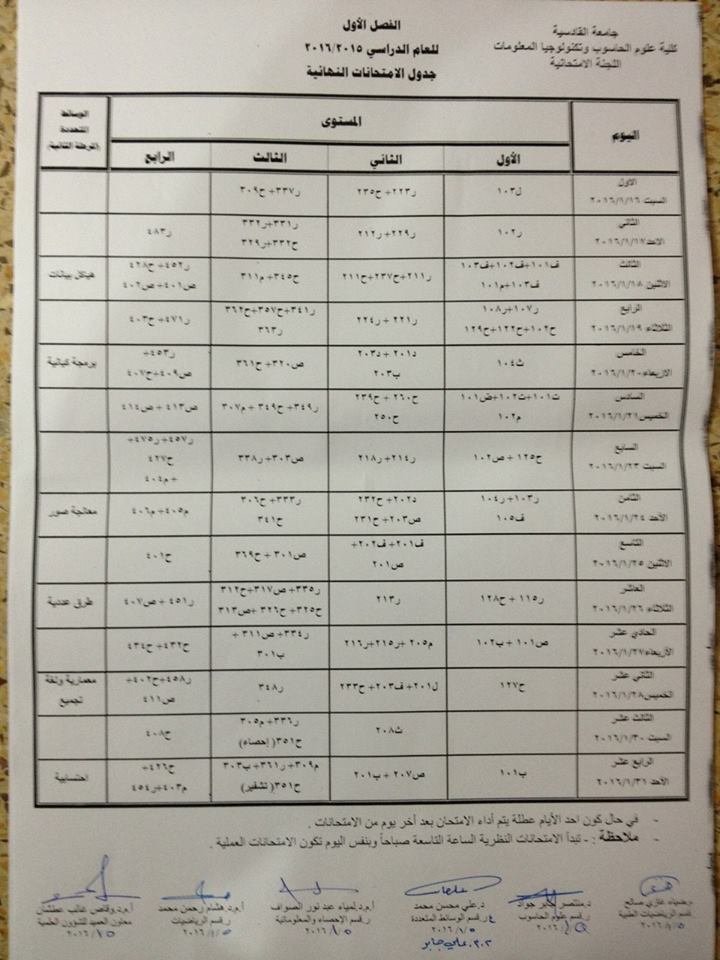 جامعة القادسية
كلية علوم الحاسوب وتكنولوجيا المعلومات
اللجنة الامتحانية
الفصل الأول
للعام الدراسي ٢٠١٦/٢٠١٥
جدول الامتحانات النهائية
اليوم
المستوى
الوسائط
المتعددة
الأول
الثاني
الثالث
الرابع
الأول
السبت ٢٠١٦/١/١٦
ل١٠٣
ر٢٢٣+ ح٢٣٥
ر٣٣٧+ ح٣٠٩
الثاني
الاحد ٢٠١٦/١/١٧
ر١٠٢
ر٢٢٩+ ر٢١٢
ر٣٣١+ر٣٣٢
ح٣٣٢+ر٣٢٩
ر٤٨٣
الثالث
الاثنين ٢٠١٦/١/١٨
ف١٠١+ف١٠٢+ف١٠٣
ف١٠٣+م١٠١
ر٢١١+ح٢٣٧+ح٢١١
ح٣٤٥+ م٣١١
ر٤٥٢+ ح٤٢٨
ص٤٠١+ ص٤٠٢
هياكل بيانات
الرابع
الثلاثاء ٢٠١٦/١/١٩
ر١٠٧+ر١٠٨
ح١٠٢+ح١٢٢+ح١٢٩
ر٢٢١+ ر٢٢٤
ر٣٤١+ح٣٥٧+ح٣٦٢
ر٣٦٣
ر٤٧١+ ح٤٠٣
الخامس
الاربعاء ٢٠١٦/١/٢٠
ث١٠٤
د٢٠١+ د٢٠٣
ب٢٠٣
ص٣٢٠+ ح٣٦١
ر٤٥٣+
ص٤٠٩+ح٤٠٧
برمجة كيانية
السادس
الخميس ٢٠١٦/١/٢١
ت١٠١+ت١٠٢+ض١٠١
م١٠٢
ح٢٦٠ + ح٢٣٩
ح٢٥٠
ر٣٤٩+ ح٣٤٩+ م٣٠٧
ص٤١٣+ ص٤١٤
السابع
السبت ٢٠١٦/١/٢٣
ح١٢٥+ ص١٠٢
ر٢١٤+ ر٢١٨
ص٣٠٣+ ر٣٣٨
ر٤٥٧+ ر٤٧٥+
ح٤٢٧
+ م٤٠٤
الثامن
الأحد ٢٠١٦/١/٢٤
ر١٠٣+ ر١٠٤
ف١٠٥
د٢٠٢+ ح٢٣٢
ص٢٠٣+ ح٢٣١
ر٣٣٣+ ح٣٠٦
ح٣٤١
م٤٠٥+ م٤٠٦
معالجة صور
التاسع
الاثنين ٢٠١٦/١/٢٥
ف٢٠١+ ف٢٠٢+
ص٢٠١
ص٣٠١+ ح٣٦٩
ح٤٠١
العاشر
الثلاثاء ٢٠١٦/١/٢٦
ر١١٥+ ح١٢٨
ر٢١٣
ر٣٣٥+ ص٣١٧+ح٣١٢
ح٣٢٥+ ح٣٢٦+ ص٣١٣
ر٤٥١+ ص٤٠٧
طرق عددية
الحادي عشر
الأربعاء ٢٠١٦/١/٢٧
ص١٠١+ ب١٠٢
م٢٠٥+ ر٢١٥+ر٢١٦
ر٣٣٤+ ص٣١١+
ب٣٠١
ح٤٣٢+ ح٤٣٤
الثاني عشر
الخميس ٢٠١٦/١/٢٨
ح١٢٧
ل٢٠١+ ف٢٠٣+ ح٢٣٣
ر٣٤٨
ر٤٥٨+ح٤٠٢+
ص٤١١
معمارية ولغة
تجميع
الثالث عشر
السبت ٢٠١٦/١/٣٠
ث٢٠٨
ر٣٣٦+ م٣٠٥
ح٣٥١(إحصاء)
ح٤٠٨
الرابع عشر
الأحد ٢٠١٦/١/٣١
ب١٠١
ص٢٠٧+ ب٢٠١
م٣٠٩+ ر٣٦١+ ب٣٠٣
ح٣٥١(تشفير)
ح٤٢٦+
م٤٠٣+ ر٤٥٤
احتسابية
- في حال كون احد الأيام عطلة يتم أداء الامتحان بعد أخر يوم من الامتحانات .
- ملاحظة : - تبدأ الامتحانات النظرية الساعة التاسعة صباحاً وبنفس اليوم تكون الامتحانات العملية .
ضياء غازي صالح
قسم الرياضيات الطبية
د.منتصر جابر جواد
ر.قسم علوم الحاسوب
د.علي محسن محمد
ر.قسم الوسائط المتعددة
أ.م.د.لمياء عبد نور الصواف
ر.قسم الاحصاء والمعلوماتية
أ.م.د.هشام رحمن محمد
ر.قسم الرياضيات
أ.م.د.وقاص غالب عطشان
معاون العميد للشؤون العلمية